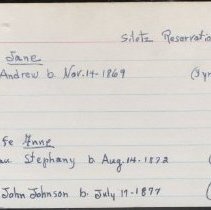 Siletz Reservatio
Jane
Andrew b. Nov. 14 - 1869
(3 yr
fe Anne
au Stephany b. Aug. 14 - 1872 (
John Johnson b. July 17 - 1877 (